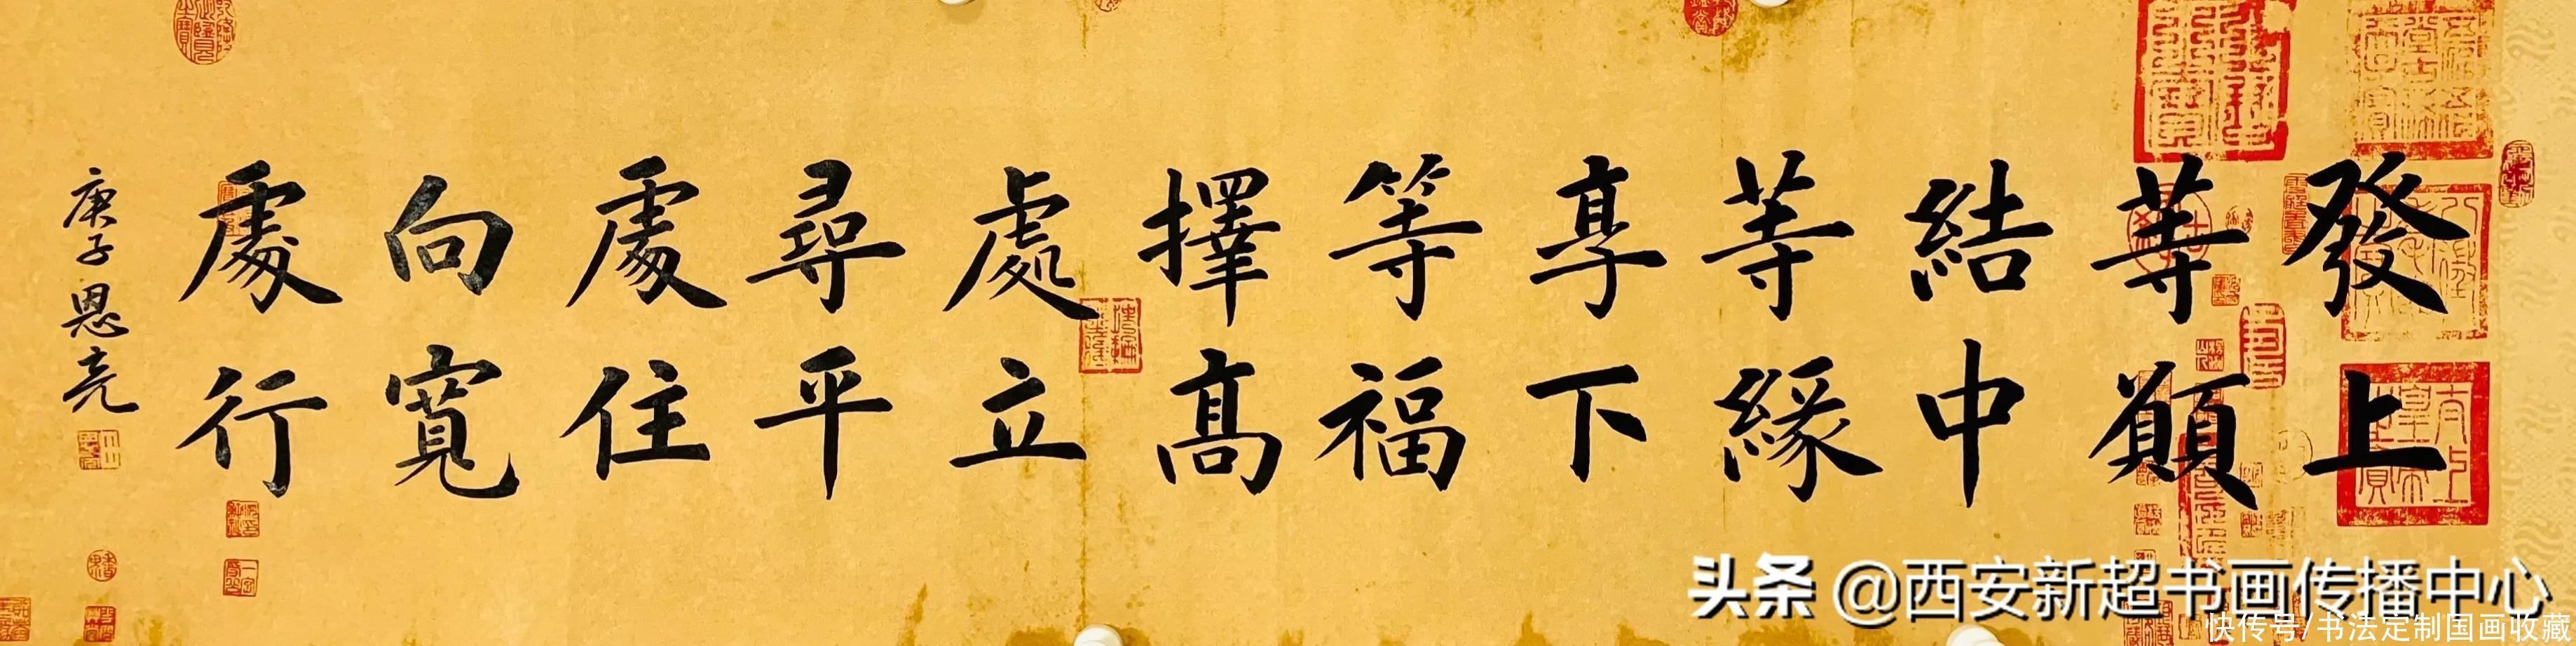 發上
等願
結中
等緣
享下
等福
擇高
處立
尋平
處住
向寬
處行
庚子恩亮
头条 @西安新超书画传播中心
快传号/书法定制国画收藏